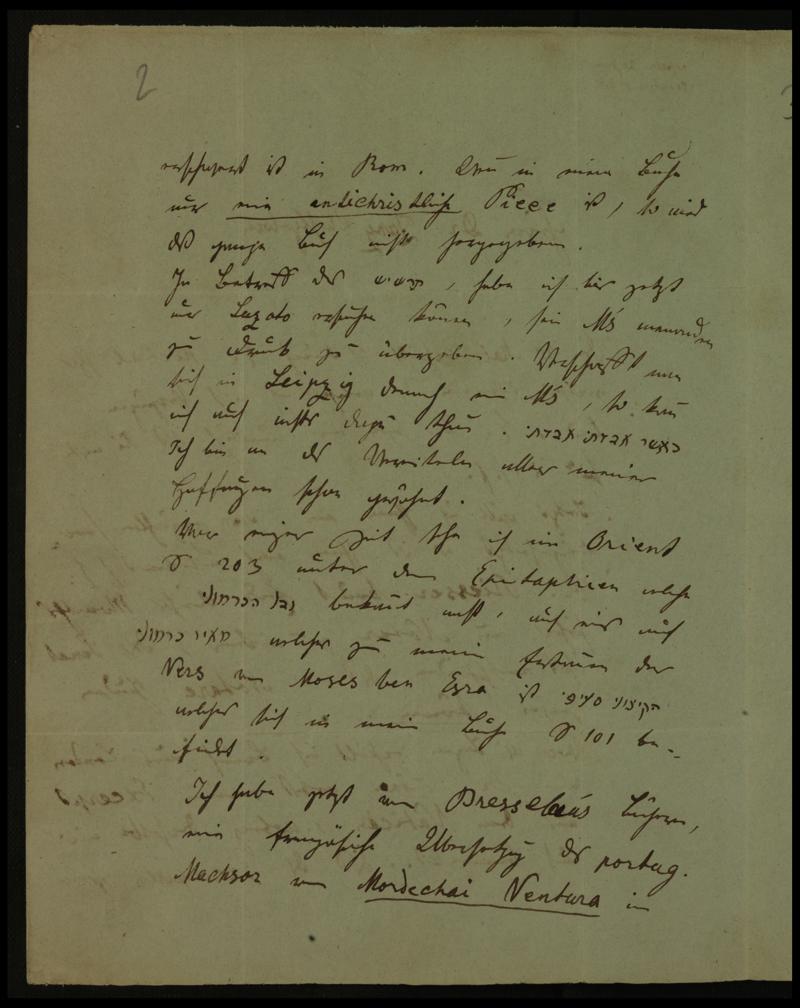 2
ist in Rom. Wenn in einem Buche
nur eine antichristliche Piece ist, so wird
das ganze Buch nicht herausgegeben.
In Betreff der , habe ich bis jetzt
nur Luzato ersuchen können, sein Ms
zu Druck zu übergeben. Verschafft man
sich in Leipzig darnach ein Ms, so kann
ich auch nichts dazu thun. כאשר אבדתי אבדתי
Ich bin an das Vereiteln aller meiner
Hoffnungen schon gewöhnt.
Vor einiger Zeit sah ich im Orient
S 203 unter den Epitaphien welche
בעל הכרמולי bekannt macht, auch eins auf
מאיר כרמולי welches zu meinem Erstaunen der
Vers von Moses ben Esra ist הקיצוני
welcher sich in meinem Buche S 101 be-
findet.
Ich habe jetzt von Bresselau's Büchern,
eine französische Übersetzung des portug.
Machsor von Mordechai Ventura in